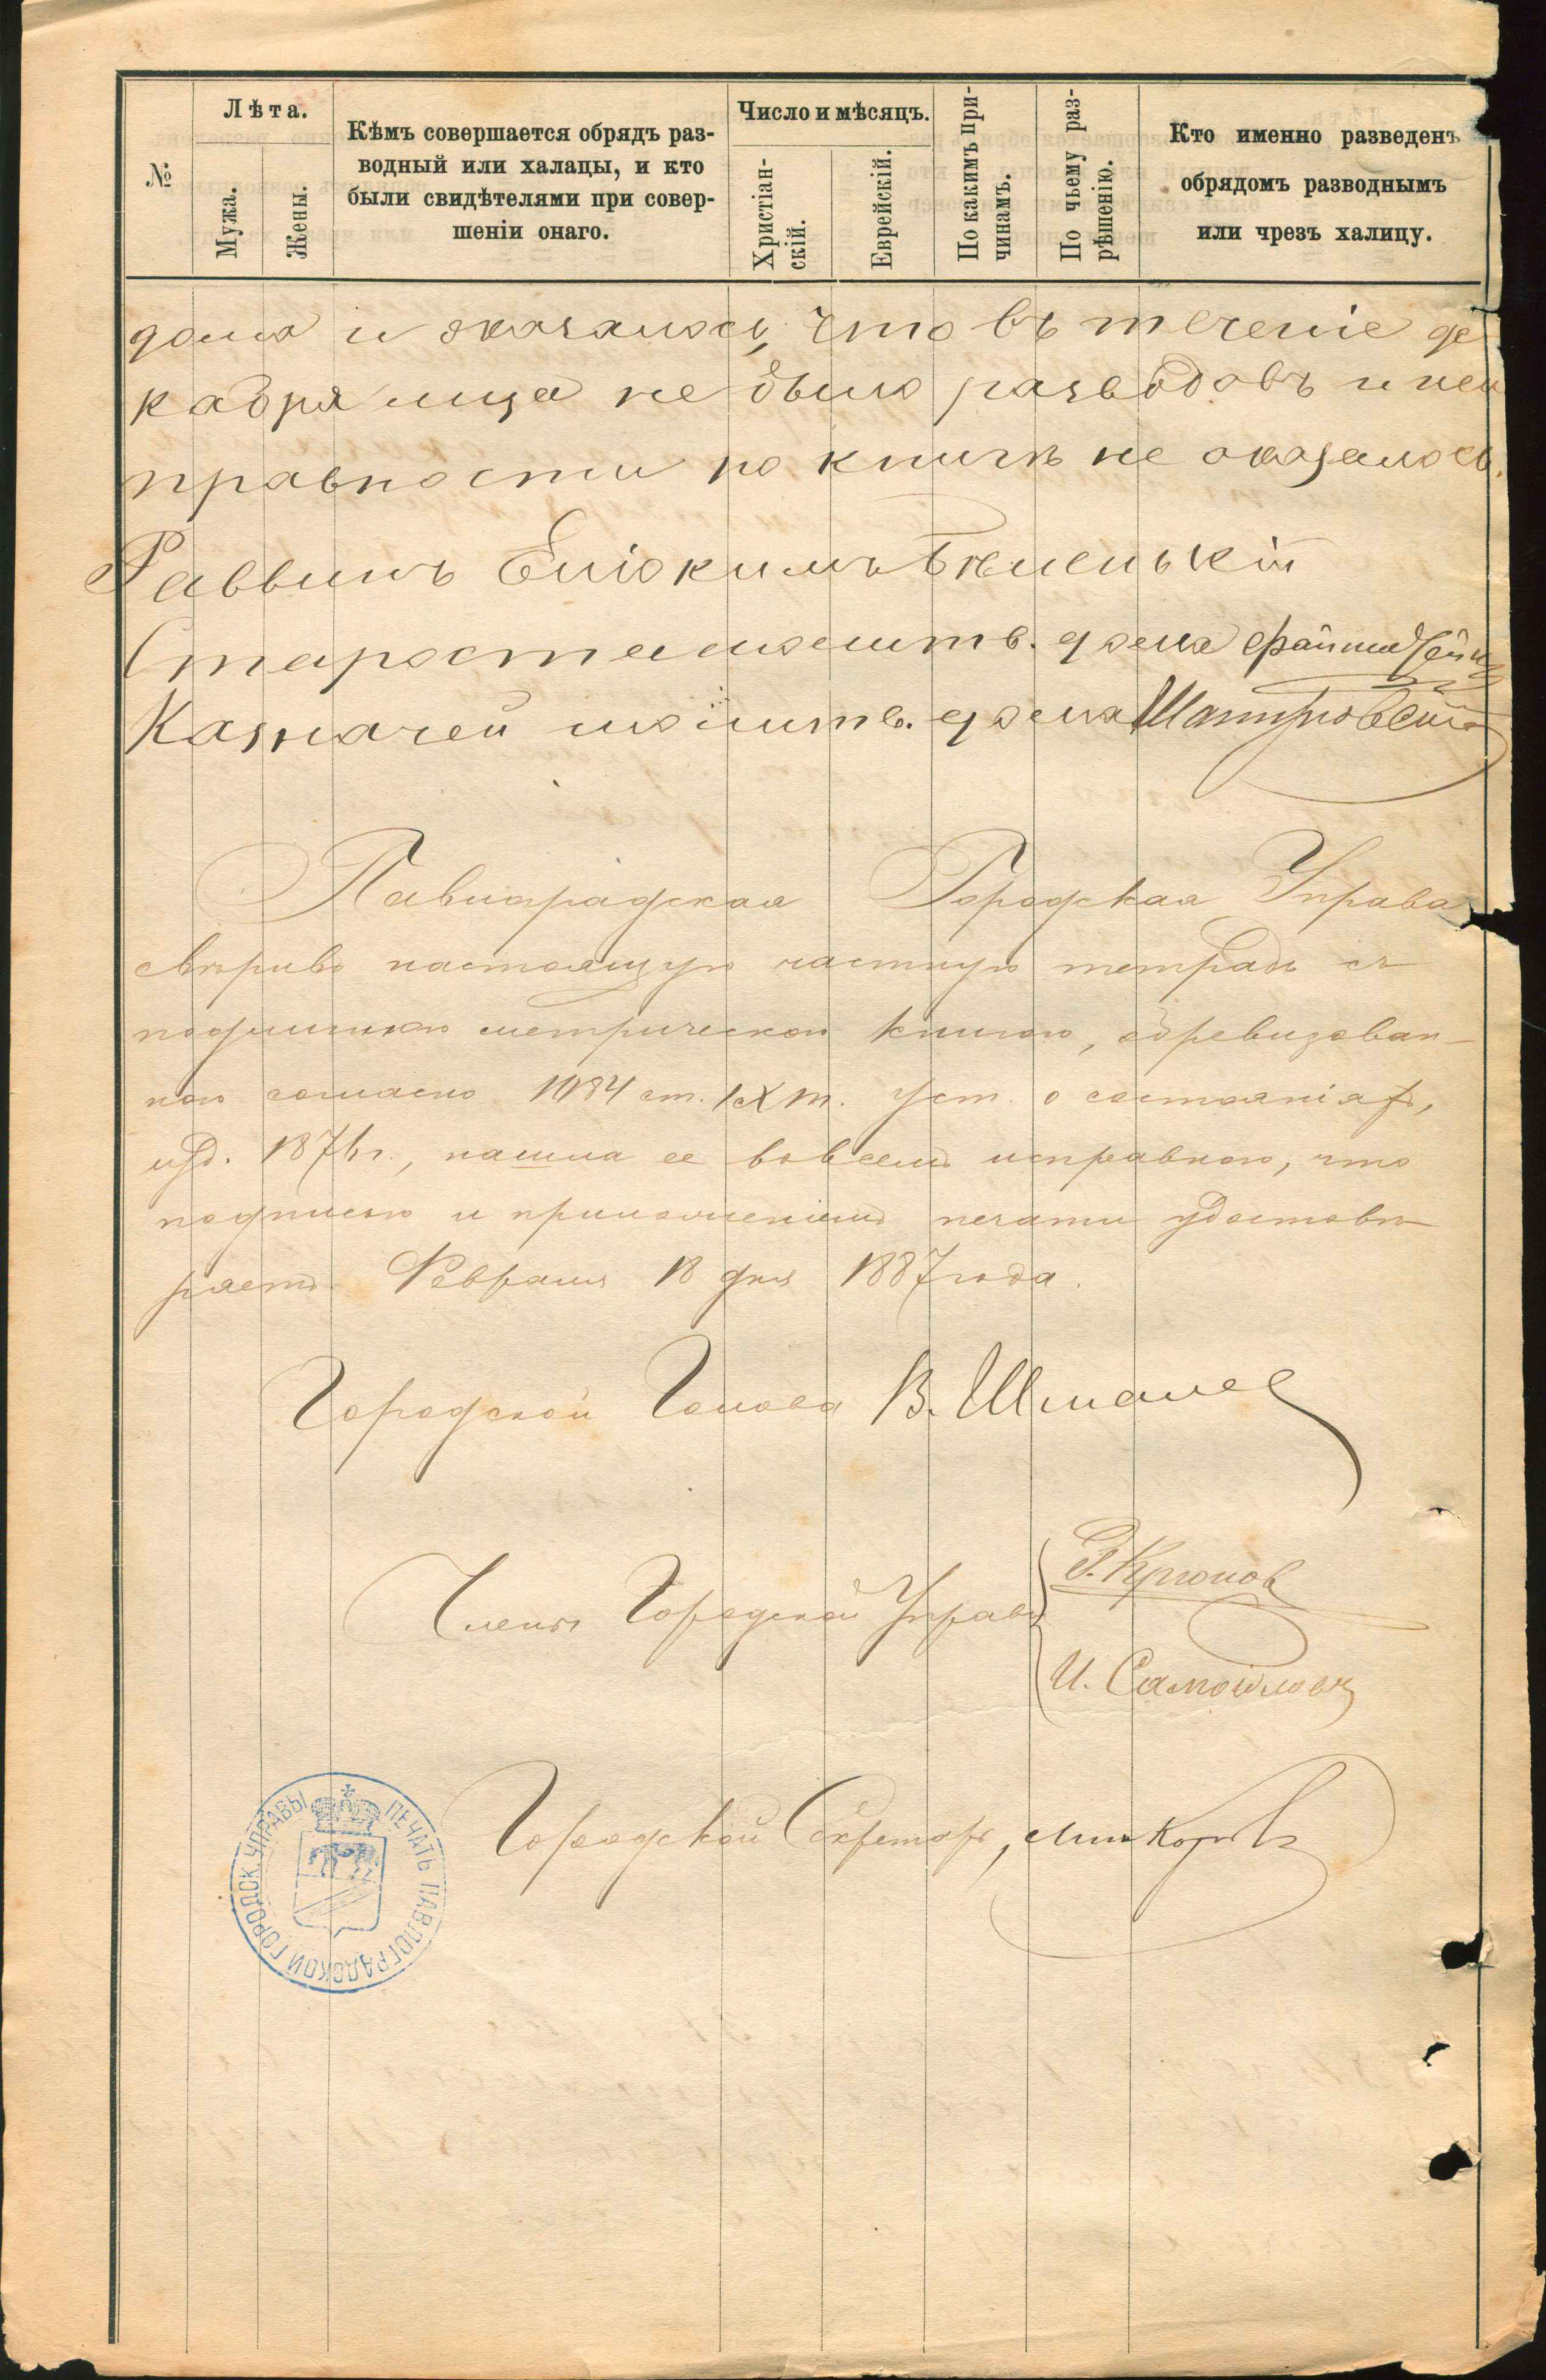 №
Лѣта.
Мужа.
Жены.
Кѣмъ совершается обрядъ раз-
водный или халацы, и кто
были свидѣтелями при совер-
шеніи онаго.
Число и мѣсяцъ.
Христіан-
скій.
Еврейскій.
По какимъ при-
чинамъ.
По чьему раз-
рѣшенію.
Кто именно разведенъ
обрядомъ разводнымъ
или чрезъ халицу.
дома и оказалось, что въ теченіе де
кабря м-ца не было разводовъ и неис
правности по книгѣ не оказалось.
Раввинъ Еліокимъ Бѣленькій
Староста молитв. дома
Казначей молитв. дома
Павлоградская Городская Управа
свѣривъ настоящую частную тетрадь съ
подлинною метрическою книгою, обревизован-
ною согласно 1084 ст. IX т. уст. о состояніяхъ,
изд. 1876 г., нашла ее вовсемъ исправною, что
подписью и приложеніемъ печати удостовѣ-
ряетъ. Февраля 18 дня 1887 года.
Городской Голова В. Шмалев
Члены Городской Управы
Крюков
И. Самойловъ
Городской Секретарь,
ПЕЧАТЬ ПАВЛОГРАДСКОЙ ГОРОДСК. УПРАВЫ